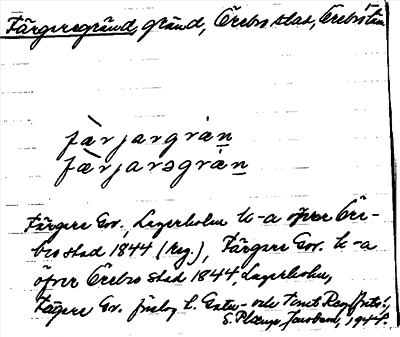 Färgeregränd, gränd, Örebro stad, Örebro län
fàrjargrän
fàrjarəgrän
Färgere Gr., Lagerholm k-a öfver Öre-
bro stad 1844 (Reg.), Färgere Gr. k-a
öfver Örebro stad 1844, Lagerholm,
Färgere Gr. förslag t. Gatu- och Tomt Reg.
S. 1944.